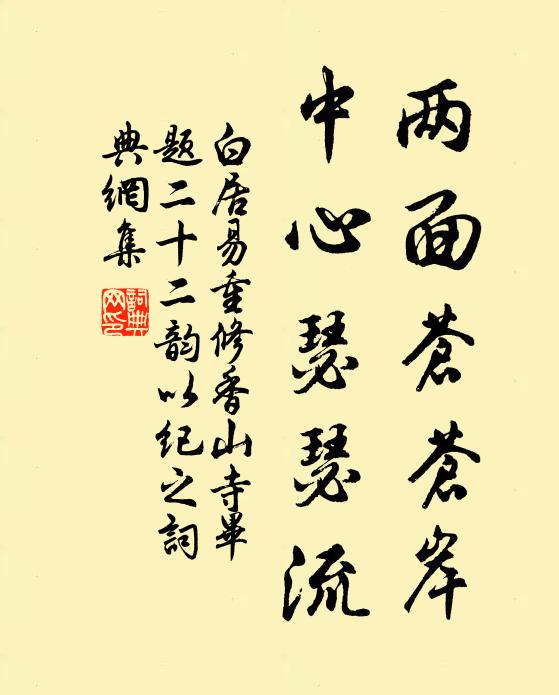 两面苍苍岸
中心瑟瑟流
白居易重修香山寺畢
題二十二韵以紀之詞
典網集
詞典网印